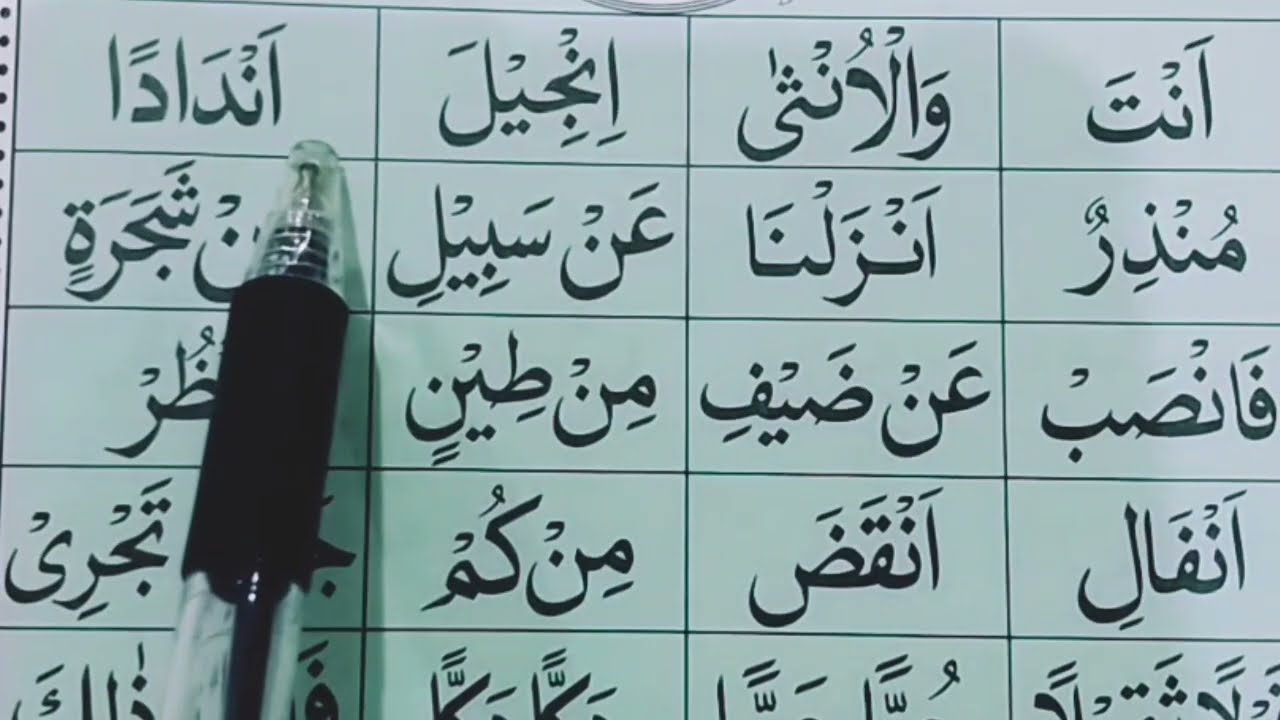 اَنْتَ وَالْاُنْثٰى اِنْجِيْلَ اَنْدَادًا
مُنْذِرٌ اَنْزَلْنَا عَنْ سَبِيْلِ شَجَرَةٍ
فَانْصَبْ عَنْ ضَيْفِ مِنْ طِيْنٍ
اَنْفَالِ اَنْقَضَ مِنْ كُمْ تَجْرِىْ
دَكًّا دَكًّا ذٰلِكَ